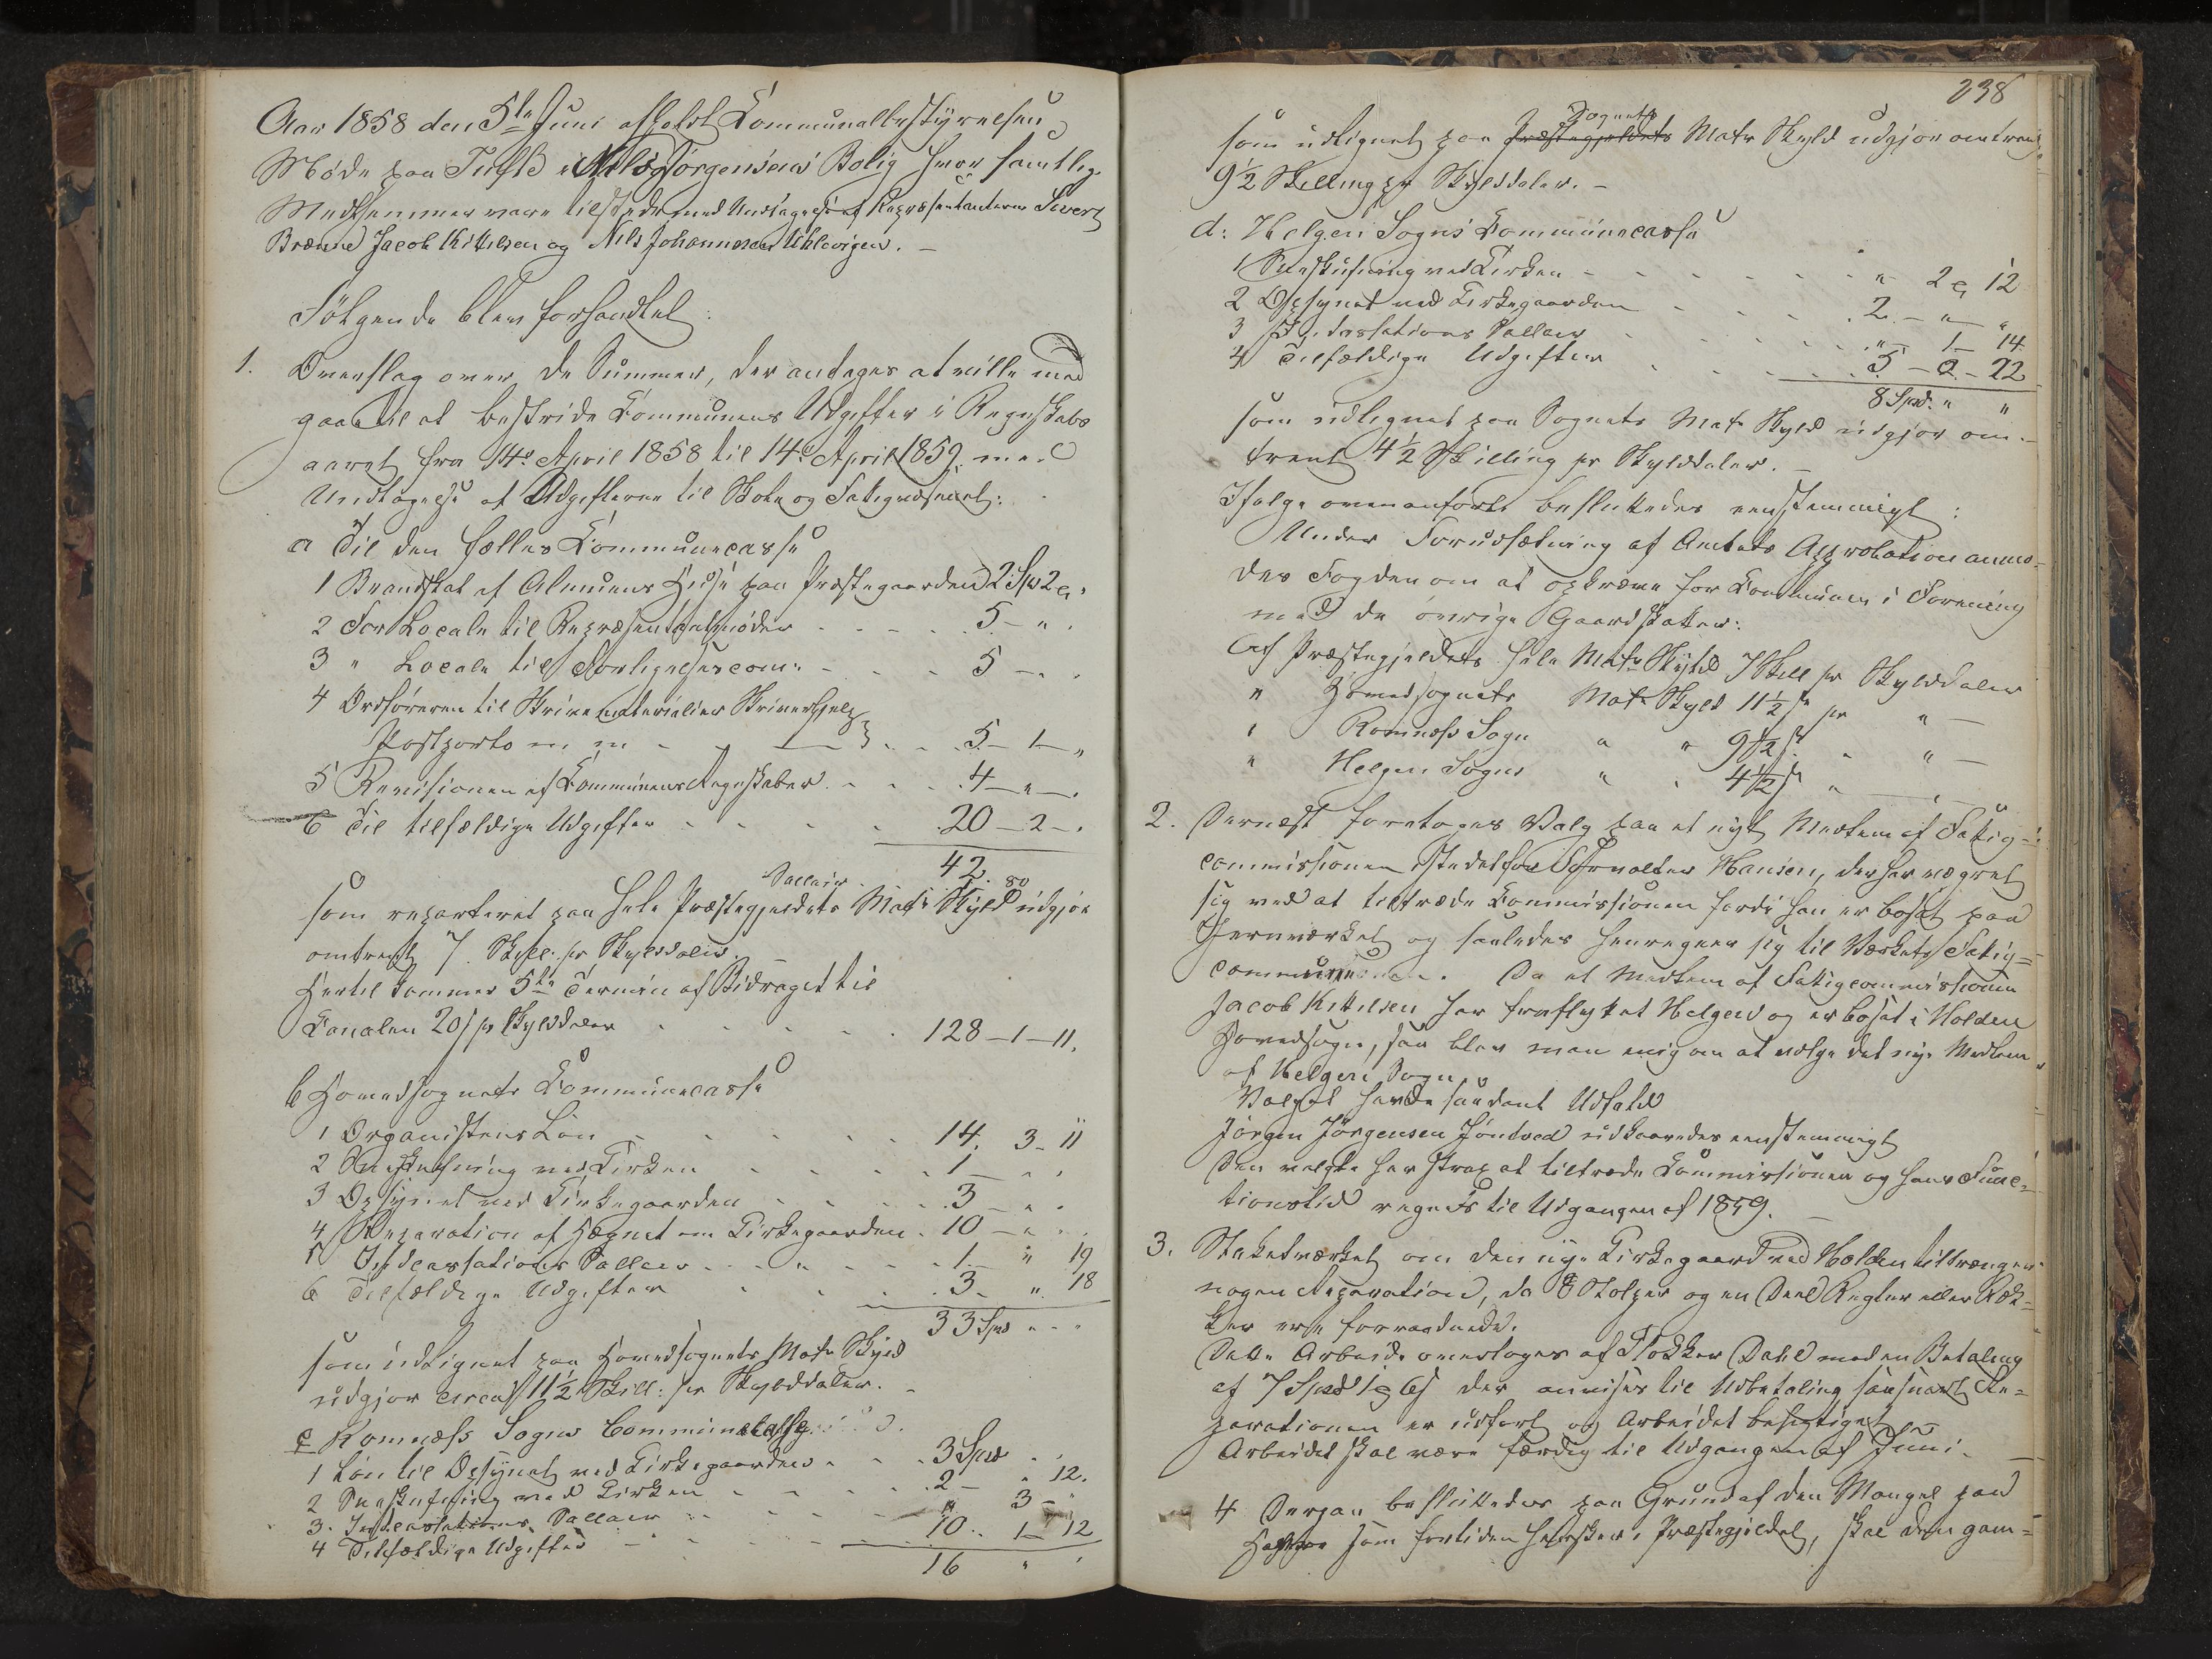 Aar 1858 den 5te Juni afholdt Communalbestyrelsen
Møde paa Tufte i Nils Jorgensens Bolig hvor samtlige
Medlemmer vare tilstede med Undtagelse af Repræsentanterne Sivert
Brænne Jacob Kittilsen og Nils Johannesen Uhlevigen. –
Følgende blev forhandlet:
1. Overslag over de Summer, der antages at ville med
gaae til at bestride Communens Udgifter i Regnskabs
aaret fra 14de April 1858 til 14de April 1859. med
Undtagelse af Udgifterne til Skole og Fatigvæsenet:
a Til den fælles Communecasse
1 Brandskat af Almuens Huse paa Præstegaarden 2 Spd 2 "
2 For Locale til Repræsentantmøder - - - 5 - " .
3 " Locale til Forligelsescom: - - - 5 - " .
4 Ordføreren til Skrivematerialier Skriverhjelp
Postporto m m - - - 5 - 1 - "
5 Revisionen af Communens Regnskaber - - - 4 - " - .
6 Til tilfældige Udgifter - - - 20 - 2 - .
42.
som reparteret paa hele Præstegjeldets Matr Skyld udgjør
omtrent 7 Skill: pr Skylddaler.
Hertil kommer 5te Termin af Bidraget til
Canalen 20 s pr Skylddaler - - - 128 - 1 - 11.
b Hovedsognets Communecasse
1 Organistens Løn - - - 14. 3 - 11
2 Sneskufning ved Kirken - - - 1 - " .
3 Opsynet ved Kirkegaarden - - - 3 - " .
4 Reparation af Hegnet om Kirkegaarden - 10 - " .
5 Incassations Sallair - - - 1 - " 19
6 Tilfældige Udgifter - - - 3 - " 18
33 Spd " - "
som udlignet paa Hovedsognets Matr Skyld
udgjør circa 11½ Skill: pr Skylddaler. –
c Romnæss Sogns Communecasse.
1 Løn til Opsynet ved Kirkegaarden - - - 3 Spd " .
2 Sneskufning ved Kirken - - - 2 - " 12.
3. Sallair - - - " 3 - "
4 Tilfældige Udgifter - - - 10 .. 1 - 12
16 " "
238
Sognets
som udlignet paa Præstegjeldets Matr Skyld udgjør omtrent
9½ Skilling pr Skylddaler. –
d: Helgen Sogns Communecasse
1 Sneskufning ved Kirken - - - " 2 12
2 Opsynet ved Kirkegaarden - - - 2 - " - "
3 Sallair - - - " 1 - 14
4 Tilfældige Udgifter - - - 5 - 0 - 22
8 Spd. " "
som udlignet paa Sognets Matr Skyld udgjør om-
trent 4½ Skilling pr Skylddaler. –
Ifølge ovenanførte besluttedes eenstemmigt:
Under Forudsætning af Amtets Approbation anmo-
des Fogden om at opkræve for Communen i Forening
med de øvrige Gaardskatter:
Af Præstegjeldets hele Matr Skyld 7 Skill pr Skylddaler
" Hovedsognets Matr Skyld 11½ s pr " –
" Romnæss Sogn " " 9½ s " " –
" Helgen Sogns " " 4½ s " – " –
2. Dernæst foretoges Valg paa et nyt Medlem af Fatig-
commissionen istedetfor Forvalter Hansen, der har vægret
sig ved at tiltræde Commissionen fordi han er bosat paa
Jernværket og saaledes henregner sig til Værkets Fatig-
commune. Da et Medlem af Fatigcommissionen
Jacob Kittilsen har fraflyttet Helgen og er bosat i Holden
Hovedsogn, saa blev man enig om at vælge det nye Medlem
af Helgen Sogn.
Valget havde saadant Udfald
Jörgen Jörgensen Jöntved udkaaredes eenstemmigt
Den valgte har strax at tiltræde Commissionen og hans Func-
tionstid regnes til Udgangen af 1859. –
3. Staketværket om den nye Kirkegaard ved Holden tiltrænger
nogen Reparation, da 8 Stolper og en Deel Regler eller Ræk-
ker ere forraadnede.
Dette Arbeide overtoges af Klokker Dahl mod en Betaling
af 7 Spd 1 6 s der anvises til Udbetaling saasnart Re-
parationen er udført og Arbeidet besigtiget
Arbeidet skal være færdig til Udgangen af Juni. –
4 Derpaa besluttedes paa Grund af den Mangel paa
som fortiden hersker i Præstegjeldet, skal den gam-